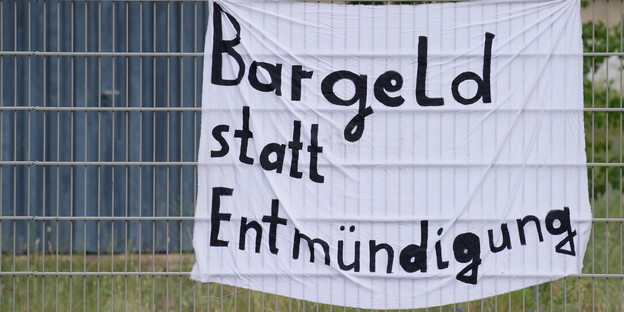 Bargeld
statt
Entmündigung